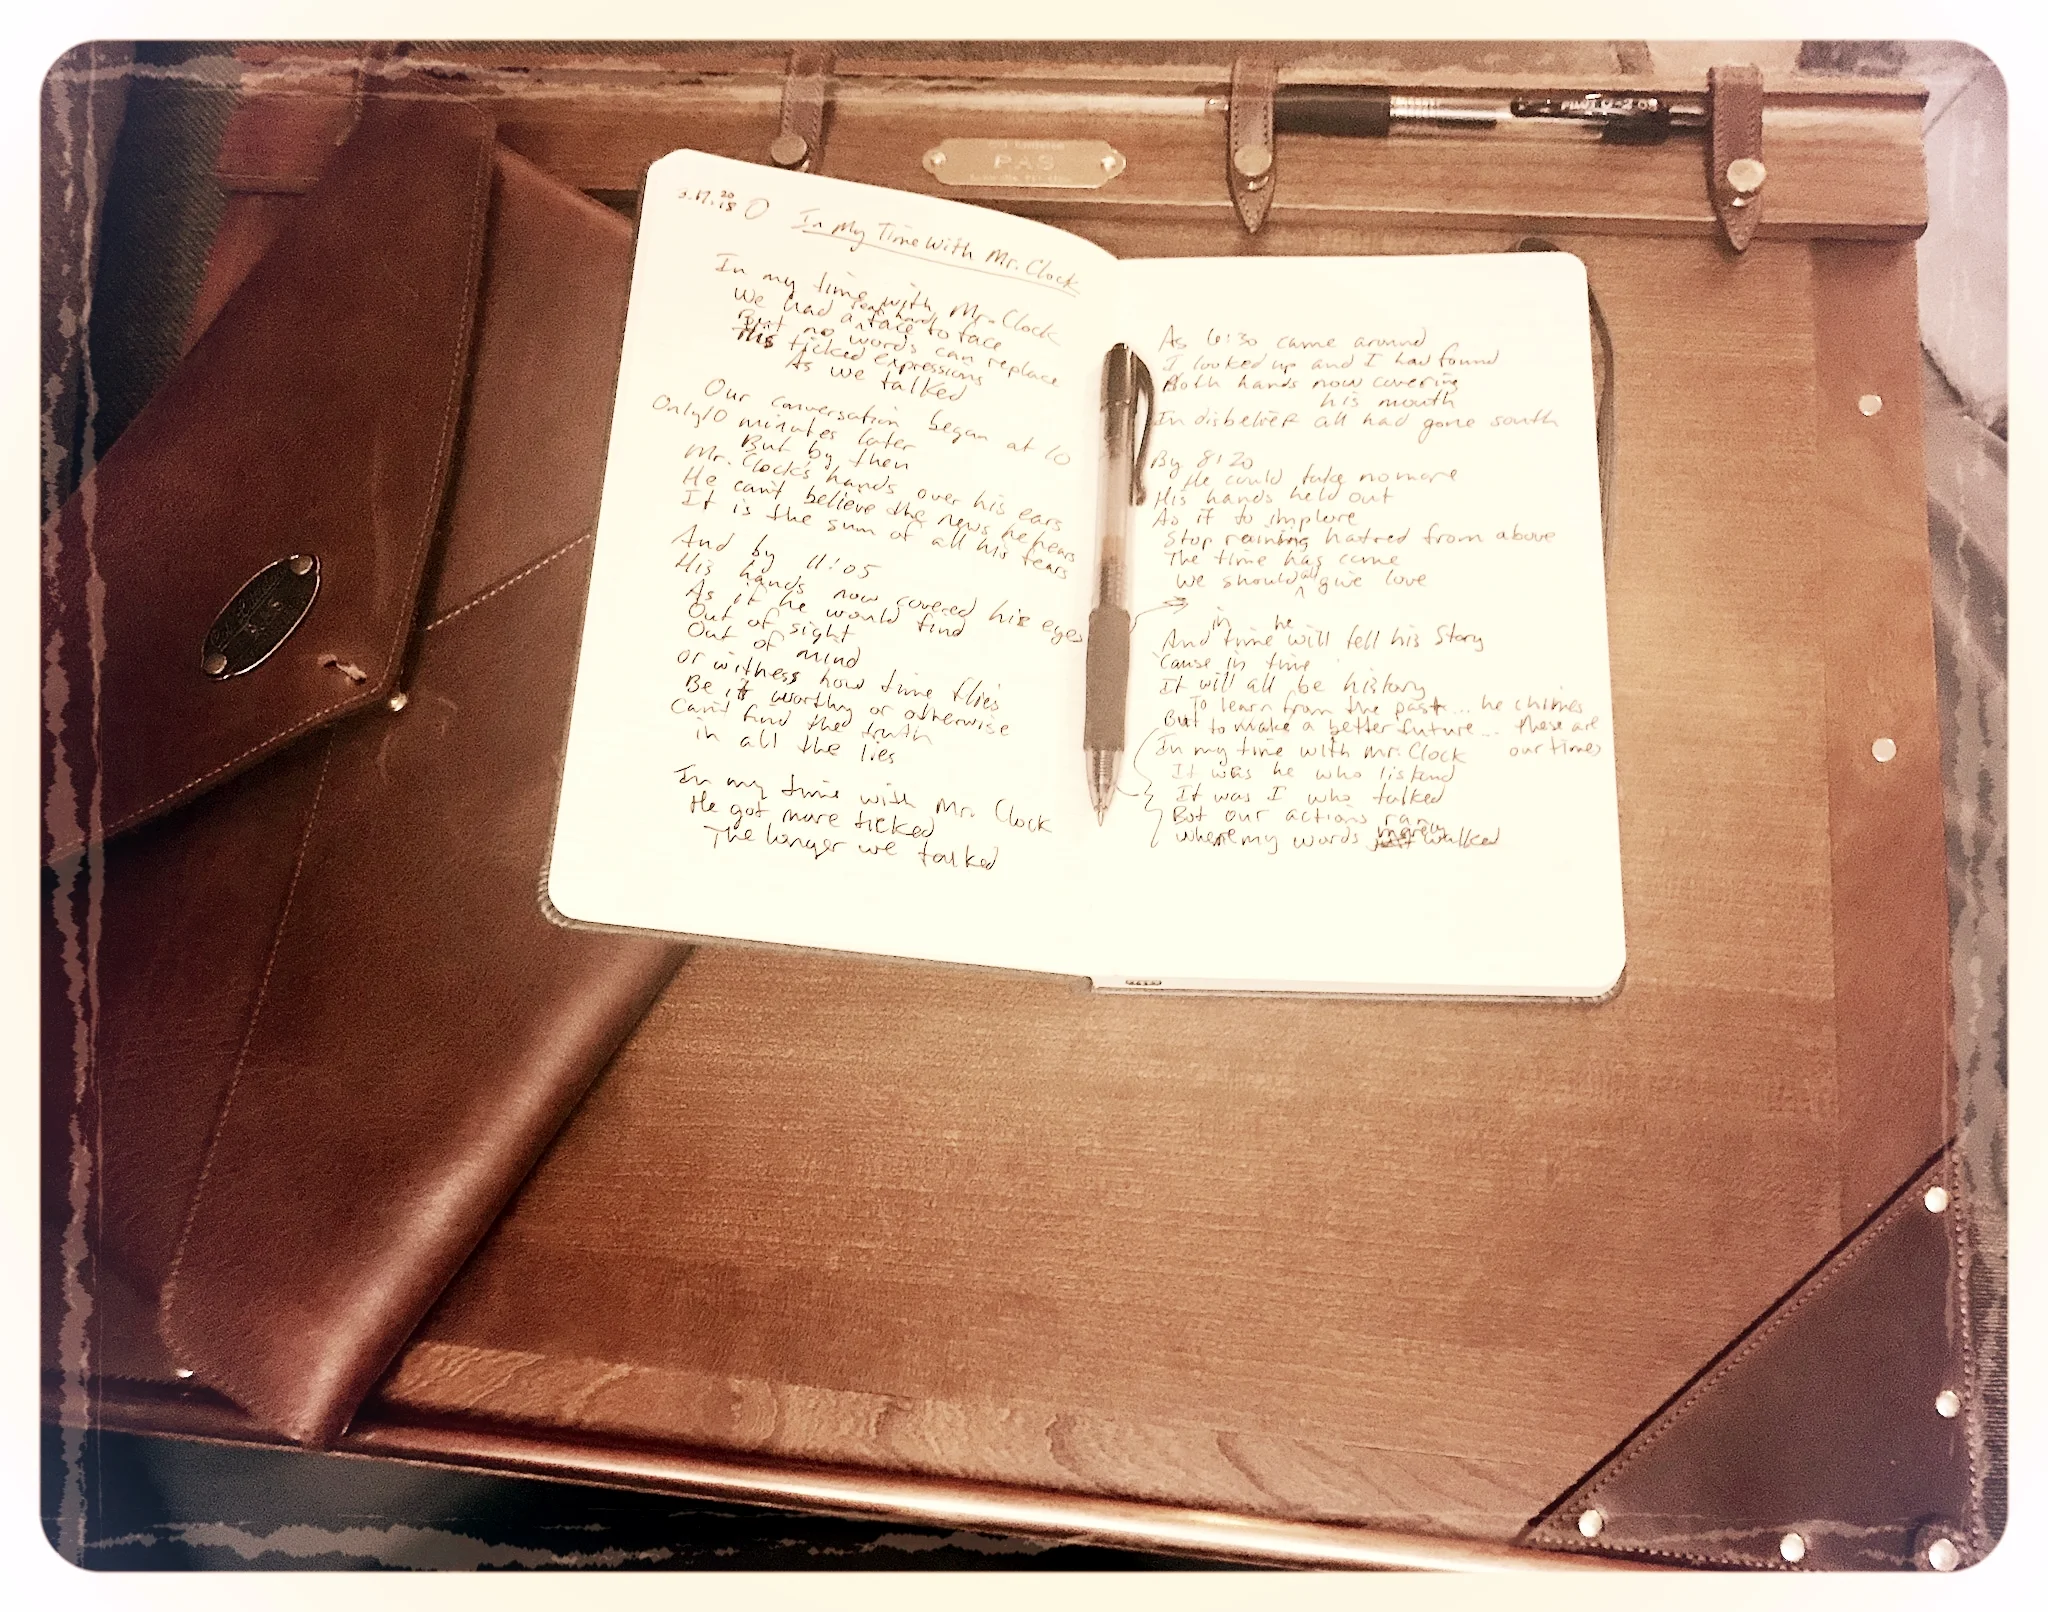 P.A.S
PILOT G-2 08
3.17.2018
In My Time With Mr. Clock
In my time with Mr. Clock
We had a face to face
But no words can replace
His ticked expressions
As we talked
Our conversation began at 10
Only 10 minutes later
But by then
Mr. Clock's hands over his ears
He can't believe the news he hears
It is the sum of all his fears
And by 11:05
His hands now covered his eyes
As if he would find
Out of sight
Out of mind
Or witness how time flies
Be it worthy or otherwise
Can't find the truth
in all the lies
In my time with Mr. Clock
He got more ticked
The longer we talked
As 6:30 came around
I looked up and I had found
Both hands now covering
his mouth
In disbelief all had gone south
By 8:20
He could take no more
His hands held out
As if to implore
Stop raining hatred from above
The time has come
We should all give love
And in time he will tell his story
'Cause in time
It will all be history
To learn from the past... he chimes
But to make a better future... these are
our times
In my time with Mr. Clock
It was he who listend
It was I who talked
But our actions ran
where my words merely walked